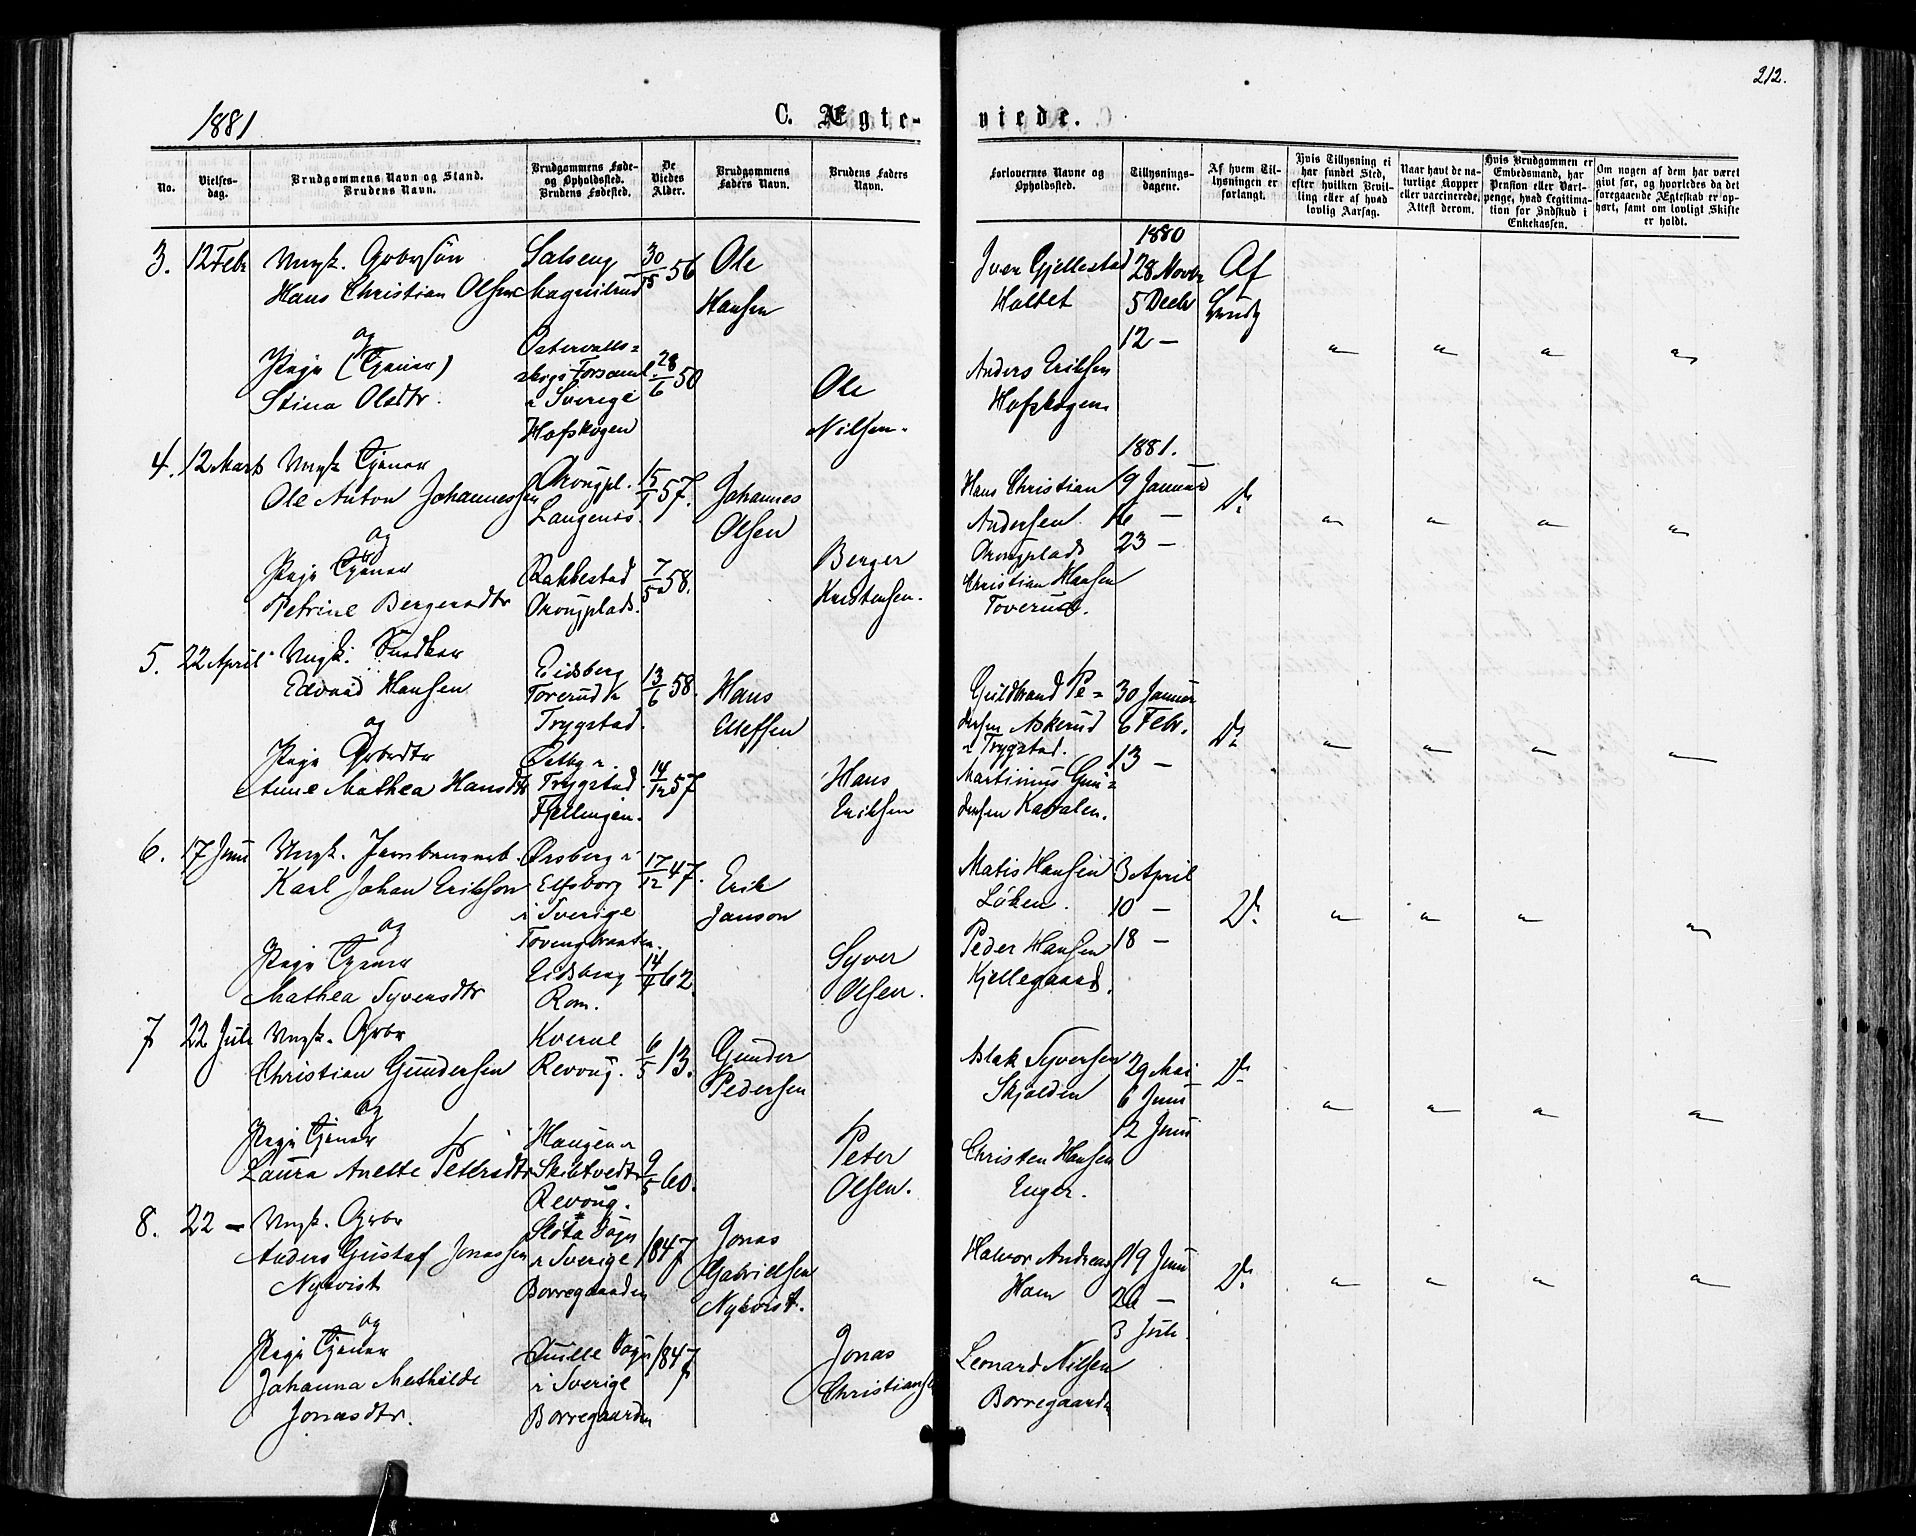 212.
1881
C. Ægte-
viede.
No.
Vielses-
dag.
Brudgommens Navn og Stand.
Brudens Navn.
Brudgommens Føde-
og Opholdssted.
Brudens Fødested.
De
Viedes
Alder.
Brudgommens
Faders Navn.
Brudens Faders
Navn.
Forlovernes Navne og
Opholdssted.
Tillysnings-
dagene.
Af hvem Til-
lysningen er
forlangt.
Hvis Tillysning ei
har fundet Sted,
efter hvilken Bevil-
ling eller af hvad
lovlig Aarsag.
Naar havt de na-
turlige Kopper
eller vaccinerede,
Attest derom.
Hvis Brudgommen er
Embedsmand, har
Pension eller Vart-
penge, hvad Legitima-
tion for Indskud i
Enkekassen.
Om nogen af dem har været
givt før, og hvorledes da det
foregaaende Ægteskab er op-
hørt, samt om lovligt Skifte
er holdt.
3. 12 Febr
Ungk. Gbrsøn
Hans Christian Olsen
og
Pige (Tjener)
Stina Olsdtr.
Salseng
i Sverige
Hofskogen
30 56
28/6 50
Ole
Hansen
Ole
Nilsen.
Iver Gjellestad
Holtet
Anders Eriksen
Hofskogen
1880
28 Novbr
5 Decbr
12 —
Af
4. 12 Marts
Ungk Tjener
Ole Anton Johannessen
og
Pige Tjener
Petrine Bergersdtr
Langenæs.
Rakkestad
15/1 57.
7/5 58.
Johannes
Olsen
Berger
Kristensen.
Hans Christian
Andersen
Christian Hansen
Toverud.
1881.
9 Januar
16 —
23 —
Do
5. 22 April
Ungk. Snedker
Edvard Hansen
og
Pige Gbrdtr
Anne Mathea Hansdtr
Eidsberg
Toverud
Trygstad.
Østby i
Trygstad
Fjellingen.
13/6 58.
14/12 57
Hans
Ellefsen
Hans
Eriksen
Guldbrand Pe-
dersen Askerud
i Trygstad.
Martinius Gun-
dersen Kavalen.
30 Januar
6 Febr.
13 —
Do
6. 17 Juni
Ungk. Jernbanearb.
Karl Johan Erikson
og
Pige Tjener
Mathea Syversdtr
Ørsberg i
Elfsborg
i Sverige
Tovengbraaten.
Eidsberg
Rom.
17/12 47.
14/4 62.
Erik
Janson
Syver
Olsen.
Matis Hansen
Løken.
Peder Hansen
Kjellegaard.
3 April
10 —
18 —
Do
7 22 Juli
Ungk. Gbr
Christian Gundersen
og
Pige Tjener
Laura Anette Petersdtr
Kverne
Revoug.
Haugen i
Skibtvedt
Revoug.
6/5 13.
9/5 60.
Gunder
Pedersen
Peter
Olsen.
Aslak Syversen
Skjolden
Christen Hansen
Enger.
29 Mai
6 Juni
12 Juni
Do
8. 22 —
Ungk. Gbr
Anders Gustaf Jonassen
Nykvist
og
Pige Tjener
Johanna Mathilde
Jonasdtr.
Slöta Sogn
i Sverige
Borregaarden
Quille Sogn
i Sverige
Borregaarden
1847
1847
Jonas
Gabrielsen
Nykvist.
Jonas
Christiansen
Halvor Andreas
Ham
Leonard Nilsen
Borregaarden
19 Juni
26 —
3 Juli.
Do